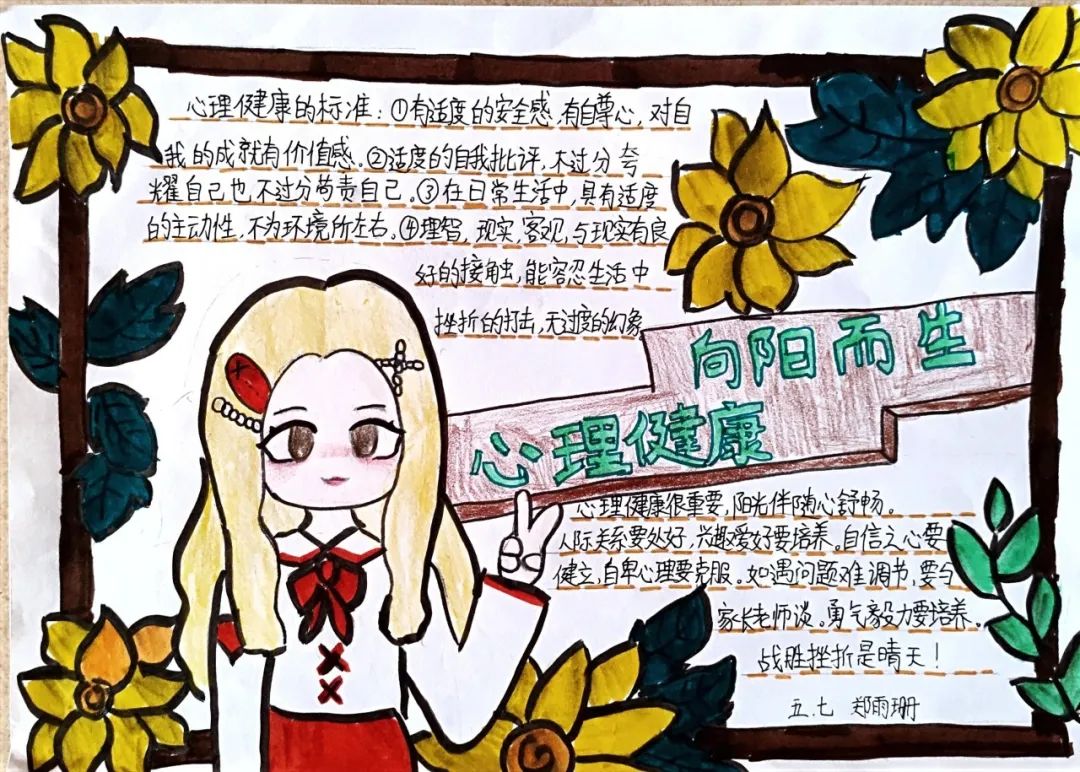 心理健康的标准：①有适度的安全感，有自尊心，对自
我的成就有价值感。②适度的自我批评，不过分夸
耀自己也不过分苛责自己。③在日常生活中，具有适度
的主动性，不为环境所左右。④理智，现实，客观，与现实有良
好的接触，能容忍生活中
挫折的打击，无过度的幻象
向阳而生
心理健康
心理健康很重要，阳光伴随心舒畅。
人际关系要处好，兴趣爱好要培养。自信之心要
健立，自卑心理要克服。如遇问题难调节，要与
家长老师谈。勇气毅力要培养。
战胜挫折是晴天！
五.七 郑雨珊